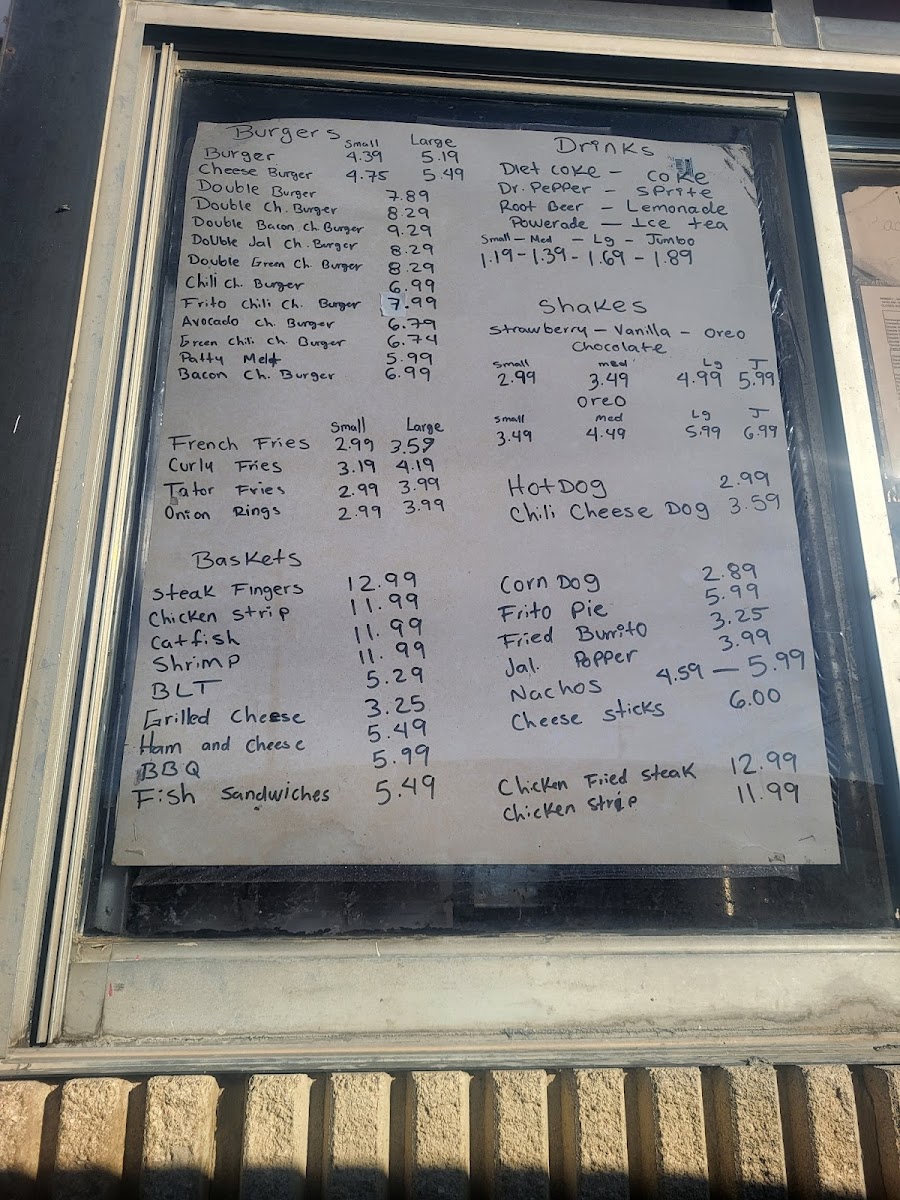 Burgers
Small Large
Burger 4.39 5.19
Cheese Burger 4.75 5.49
Double Burger 7.89
Double Ch. Burger 8.29
Double Bacon Ch. Burger 9.29
Double Jal Ch. Burger 8.29
Double Green Ch. Burger 8.29
Chili Ch. Burger 6.99
Frito Chili Ch. Burger 7.99
Avocado Ch. Burger 6.79
Green Chili Ch. Burger 6.74
Patty Melt 5.99
Bacon Ch. Burger 6.99
Small Large
French Fries 2.99 3.59
Curly Fries 3.19 4.19
Tator Fries 2.99 3.99
Onion Rings 2.99 3.99
Baskets
Steak Fingers 12.99
Chicken Strip 11.99
Catfish 11.99
Shrimp 11.99
BLT 5.29
Grilled Cheese 3.25
Ham and Cheese 5.49
BBQ 5.99
Fish Sandwiches 5.49
Drinks
Diet Coke - Coke
Dr. Pepper - Sprite
Root Beer - Lemonade
Powerade - Ice Tea
Small - Med - Lg - Jumbo
1.19 - 1.39 - 1.69 - 1.89
Shakes
Strawberry - Vanilla - Oreo
Chocolate
Small med Lg J
2.99 3.49 4.99 5.99
Oreo
Small med Lg J
3.49 4.49 5.99 6.99
Hot Dog 2.99
Chili Cheese Dog 3.59
Corn Dog 2.89
Frito Pie 5.99
Fried Burrito 3.25
Jal. Popper 3.99
Nachos 4.59 - 5.99
Cheese Sticks 6.00
Chicken Fried Steak 12.99
Chicken Strip 11.99